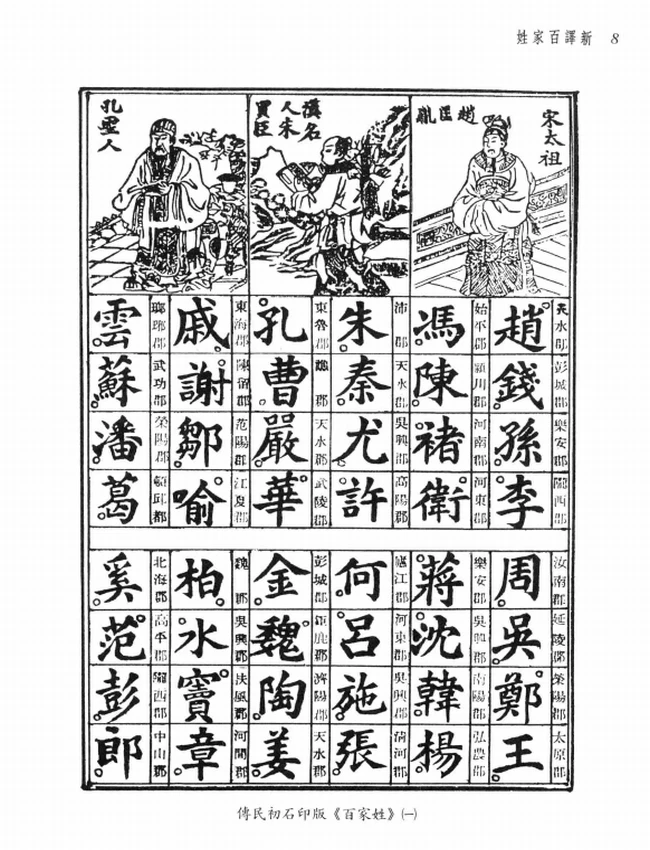 8 新譯百家姓
宋太祖
趙匡胤
漢名
人朱
買臣
孔聖
人
天水郡 彭城郡 樂安郡 隴西郡
趙錢孫李
汝南郡 延陵郡 滎陽郡 太原郡
周吳鄭王
始平郡 潁川郡 河南郡 河東郡
馮陳褚衛
樂安郡 吳興郡 南陽郡 弘農郡
蔣沈韓楊
沛郡 天水郡 吳興郡 高陽郡
朱秦尤許
廬江郡 河東郡 吳興郡 清河郡
何呂施張
東魯郡 譙郡 天水郡 武陵郡
孔曹嚴華
彭城郡 鉅鹿郡 濟陽郡 天水郡
金魏陶姜
東海郡 陳留郡 范陽郡 江夏郡
戚謝鄒喻
魏郡 吳興郡 扶風郡 河間郡
柏水竇章
瑯琊郡 武功郡 滎陽郡 頓邱郡
雲蘇潘葛
北海郡 高平郡 隴西郡 中山郡
奚范彭郎
傳民初石印版《百家姓》(一)